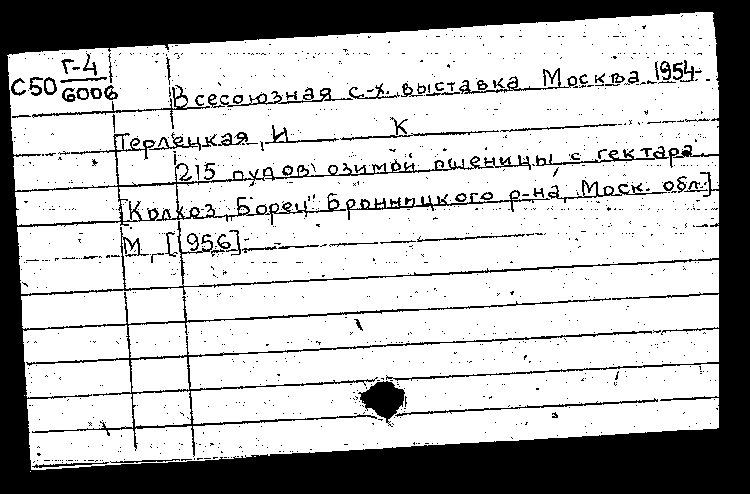 С50 Г-4
6006
Всесоюзная с.-х. выставка Москва 1954-
Терлецкая, И К
215 пудов озимой пшеницы с гектара
[Колхоз „Борец" Бронницкого р-на, Моск. обл.]
М, [1956].